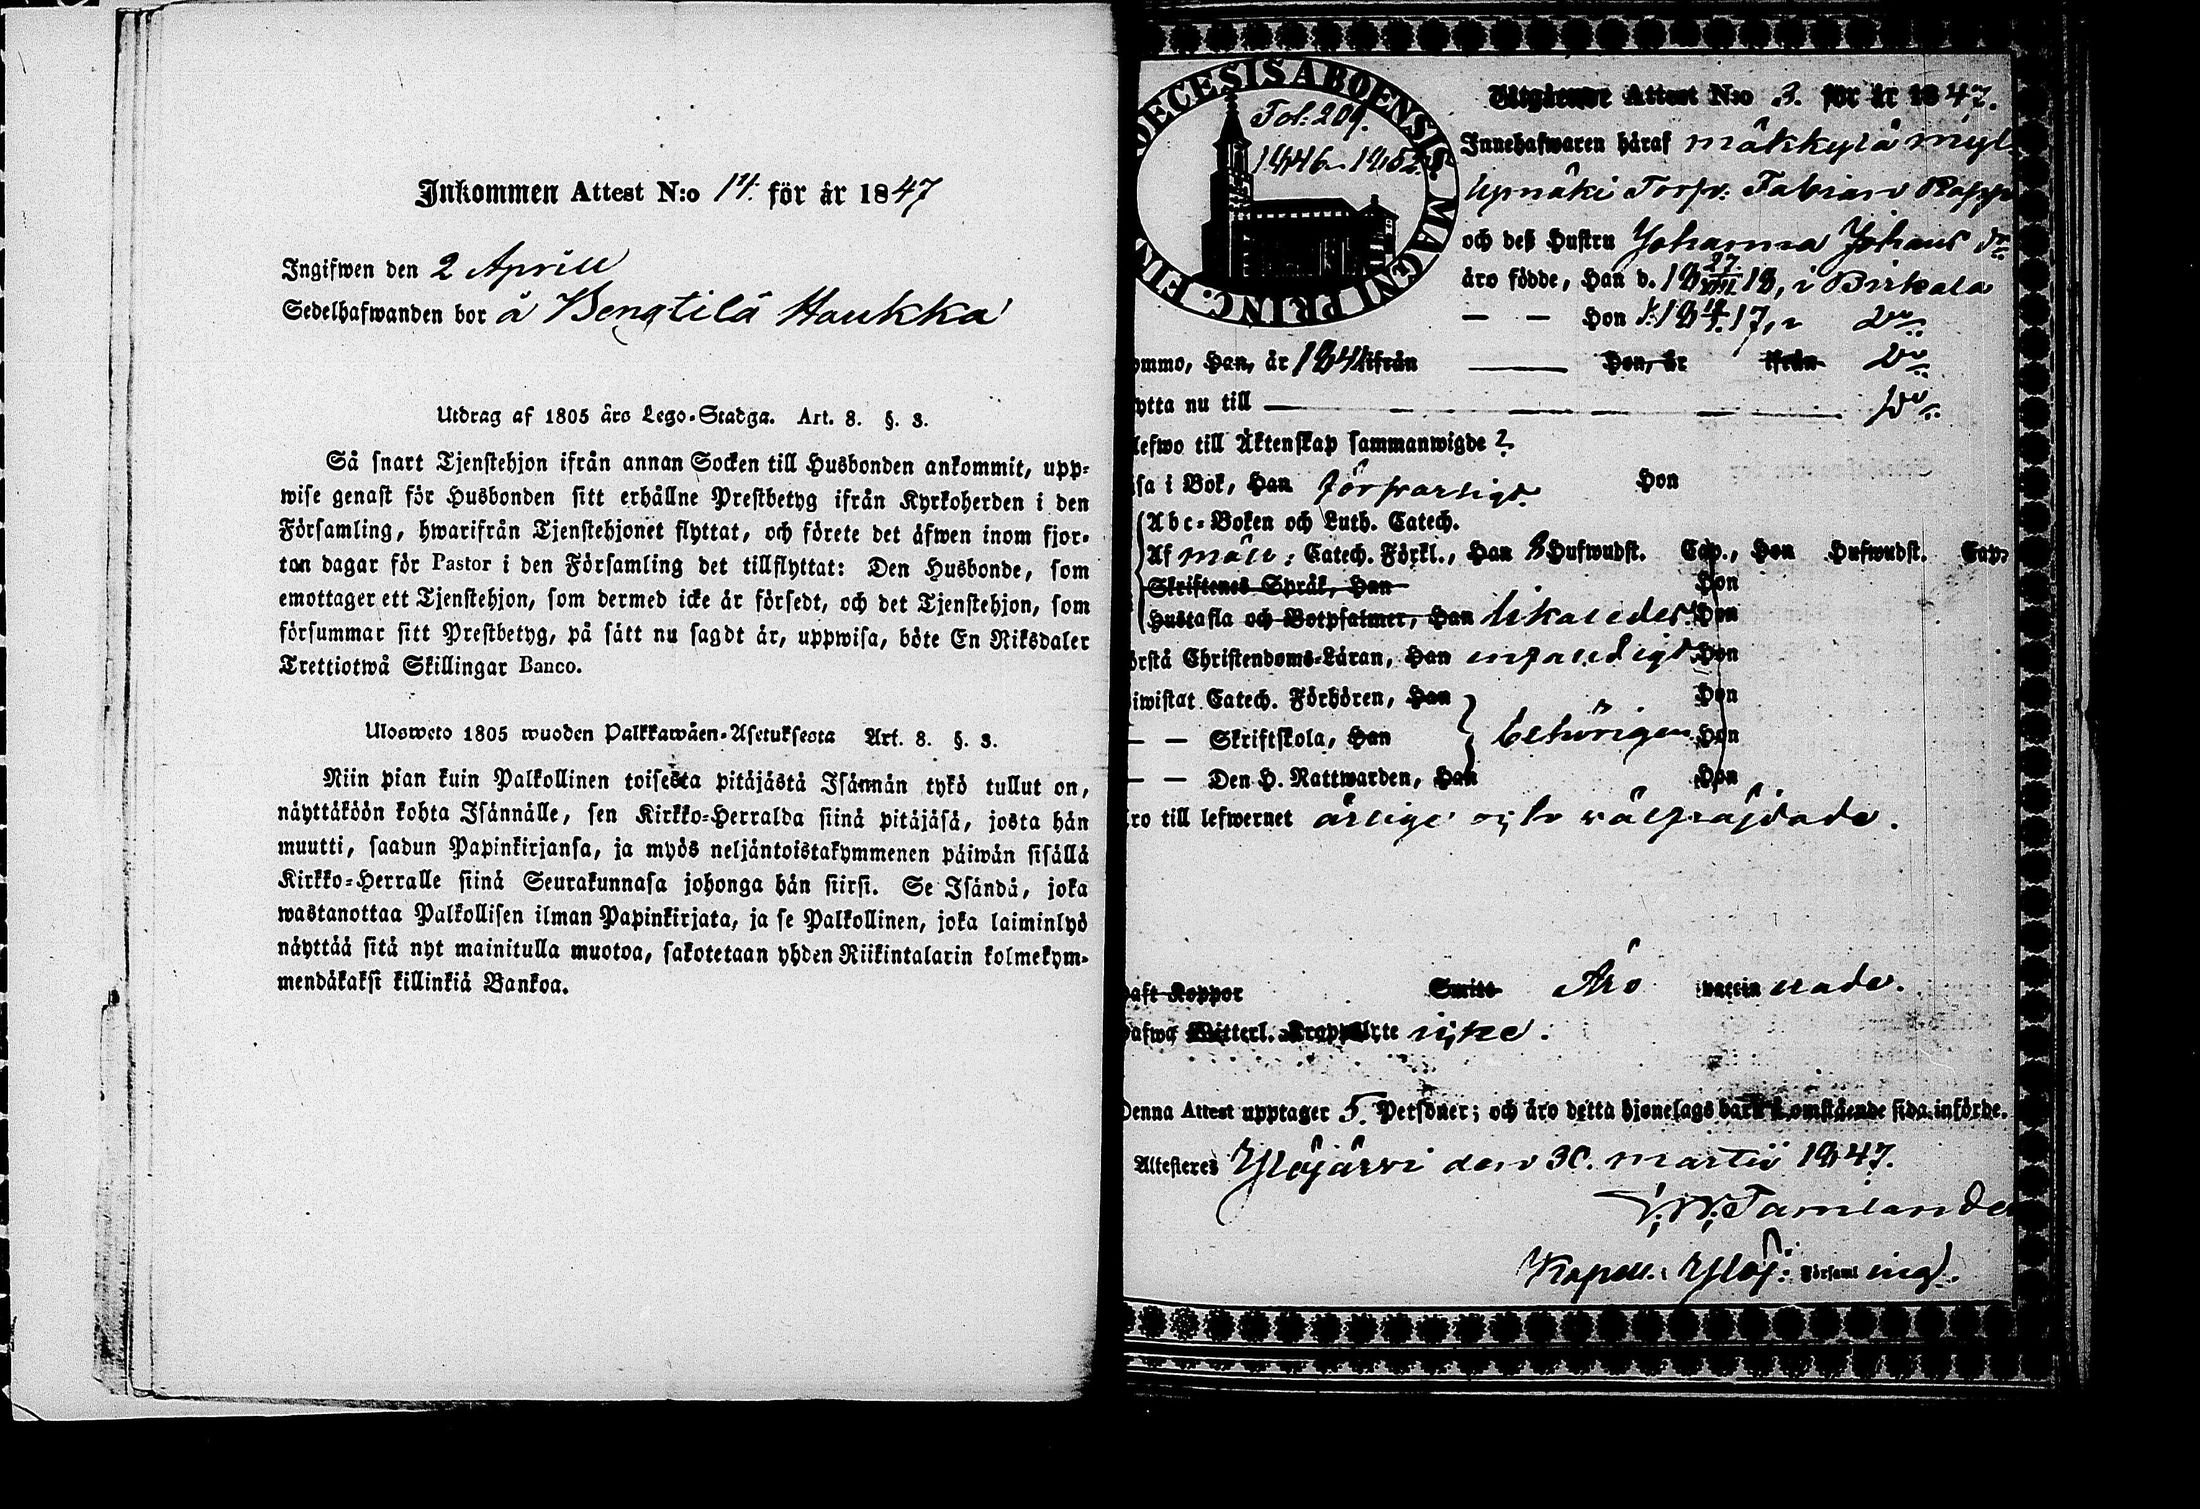 Inkommen Attest N:o 14. för år 1847
Ingifwen den 2 Aprill
Sedelhafwanden bor å Bengtilä Haukka
Utdrag af 1805 års Lego-Stadga. Art. 8. §. 3.
Så snart Tjenstehjon ifrån annan Socken till Husbonden ankommit, upp-
wise genast för Husbonden sitt erhållne Prestbetyg ifrån Kyrkoherden i den
Församling, hwarifrån Tjenstehjonet flyttat, och förete det äfwen inom fjor-
ton dagar för Pastor i den Församling det tillflyttat: Den Husbonde, som
emottager ett Tjenstehjon, som dermed icke är försedt, och det Tjenstehjon, som
försummar sitt Prestbetyg, på sätt nu sagdt är, uppwisa, böte En Riksdaler
Trettiotwå Skillingar Banco.
Ulosweto 1805 wuoden Palkkawäen-Asetuksesta Art. 8. §. 3.
Niin pian kuin Palkollinen toisesta pitäjästä Isännän tykö tullut on,
näyttäköön kohta Isännälle, sen Kirkko-Herralda siinä pitäjäsä, josta hän
muutti, saadun Papinkirjansa, ja myös neljäntoistakymmenen päiwän sisällä
Kirkko-Herralle siinä Seurakunnasa johonga hän siirsi. Se Isändä, joka
wastanottaa Palkollisen ilman Papinkirjata, ja se Palkollinen, joka laiminlyö
näyttää sitä nyt mainitulla muotoa, sakotetaan yhden Riikintalarin kolmekym-
mendäkaksi killinkiä Bankoa.
DECESIS ABOENSIS MAGNI PRINC. FIN
Fol: 209.
1846-1852.
Utgående Attest N:o 3. för år 1847.
Innehafwaren häraf Mäkkylä
Torp. Fabian
och deß Hustru Johanna Johans dr
äro födde, Han d. 18 27/VIII 18, i Birkala
— — Hon d. 17, i Do
ommo, Han, år 184 ifrån — Hon, år ifrån Do
ytta nu till — Do
lefwo till Äktenskap sammanwigde ?
sa i Bok, Han försvarligt Hon
Abc-Boken och Luth. Catech.
Af Catech. Förkl., Han 3 Hufwudst. Cap., Hon Hufwudst. Cap.
Skriftenes Språk, Han Hon
Hustafla och Botpsalmer, Han likaledes Hon
örstå Christendoms-Läran, Han enfaldigt Hon
iwistat Catech. Förhören, Han Hon
— — Skriftskola, Han behörigen Hon
— — Den H. Nattwarden, Han Hon
ro till lefwernet ärlige och välfräjdade.
aft Koppor Smitt Äro vaccinerade.
hafwa Witterl. icke.
Denna Attest upptager 5 Personer; och äro detta hjonelags barn å omstående sida införde.
Attesteres Ylöjärvi den 30. Martii 1847.
Tamlande
Kapell. i Ylöj: Församling.